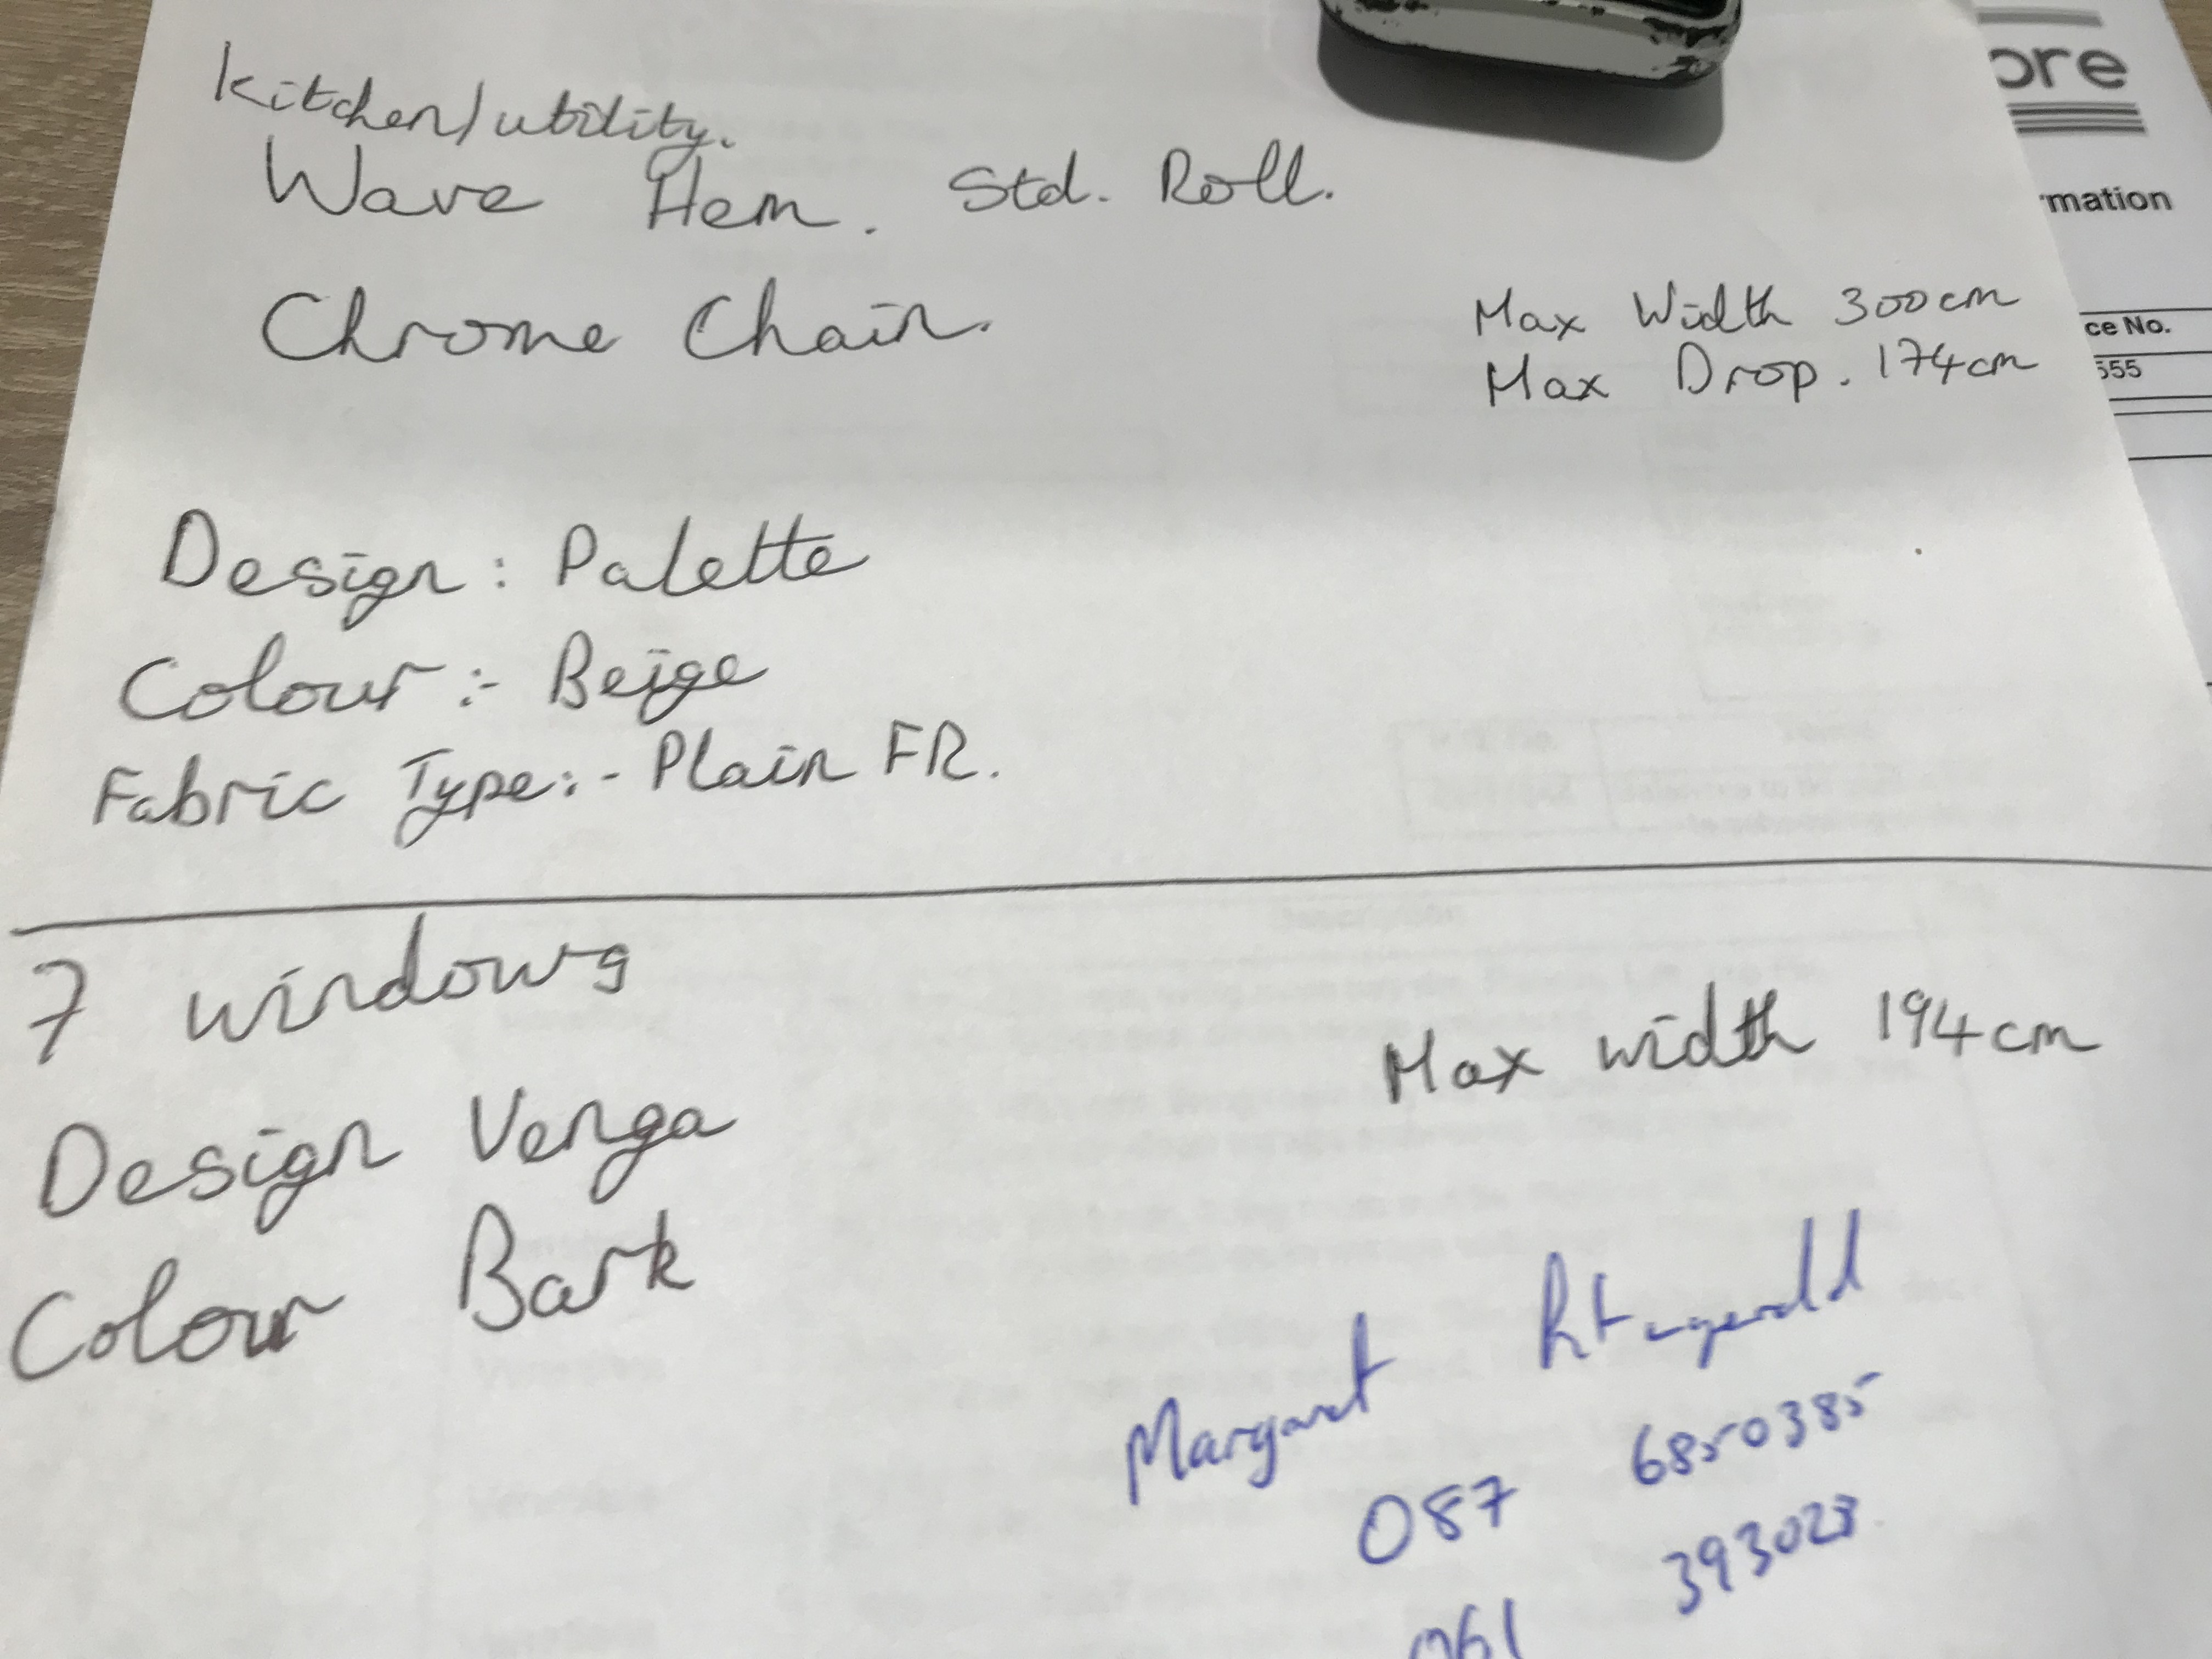 ore
rmation
ce No.
555
kitchen/utility.
Wave Hem. Std. Roll.
Chrome Chain.
Max Width 300cm
Max Drop. 174cm
Design: Palette
Colour :- Beige
Fabric Type:- Plain FR.
7 windows
Max width 194cm
Design Venga
Colour Bark
Margaret
087 6850385
061 393023